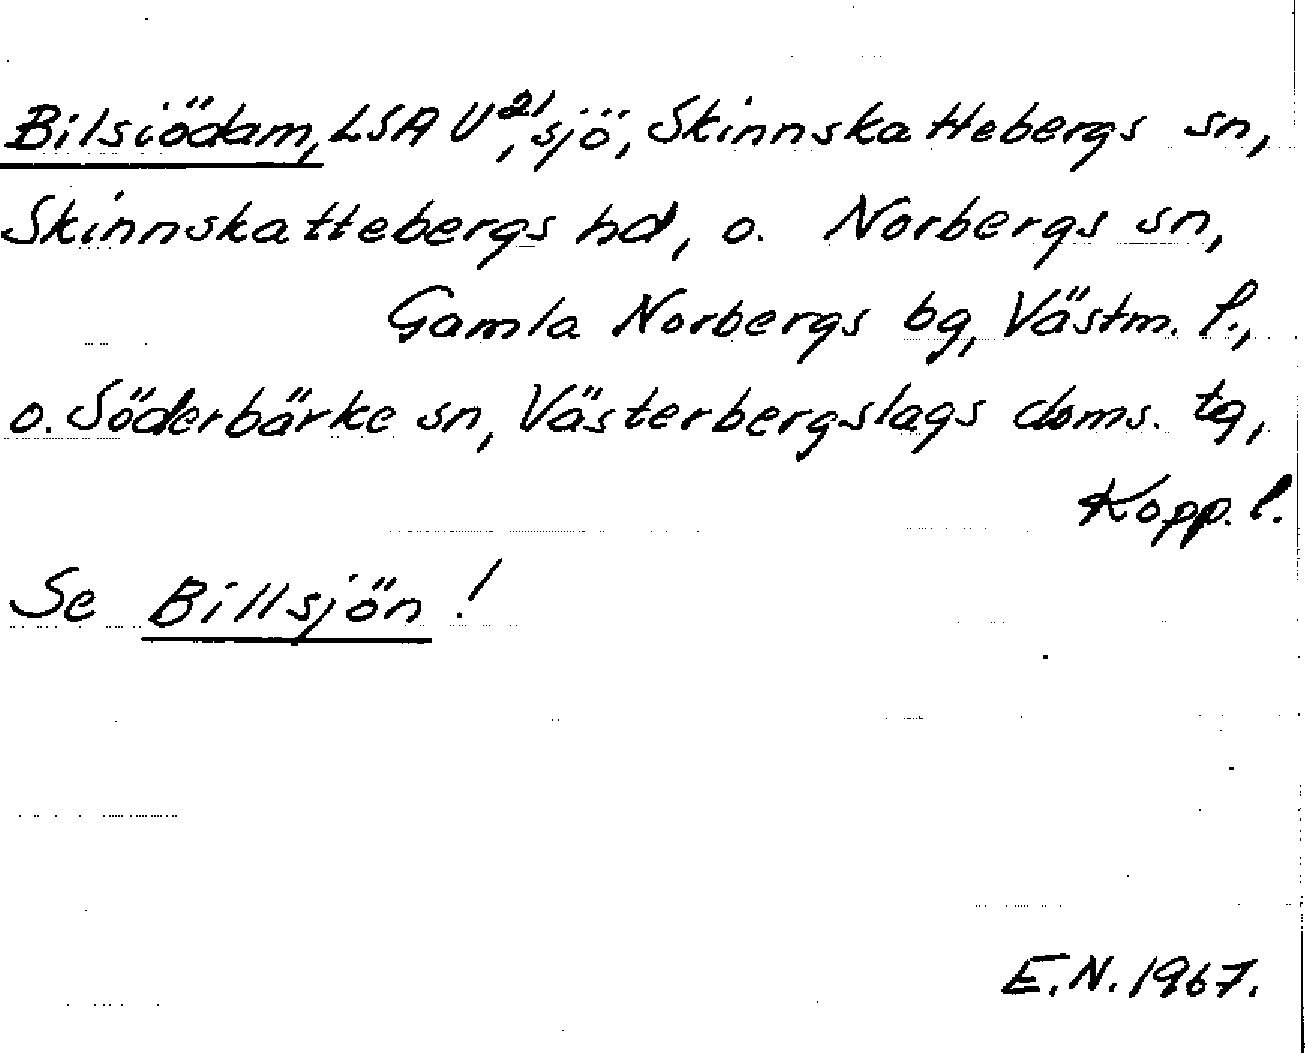 Bilsiödam, LSA U²¹, sjö, Skinnskattebergs sn,
Skinnskattebergs hd, o. Norbergs sn,
Gamla Norbergs bg, Västm. l.,
o. Söderbärke sn, Västerbergslags doms. tg,
Kopp. l.
Se Billsjön!
E.N. 1967.